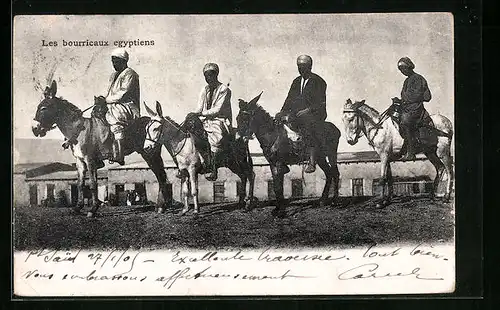 Les bourricaux egyptiens
Pt Saïd 27/1/05 - Excellente traversée. Tout bien
Vous embrassons affectueusement